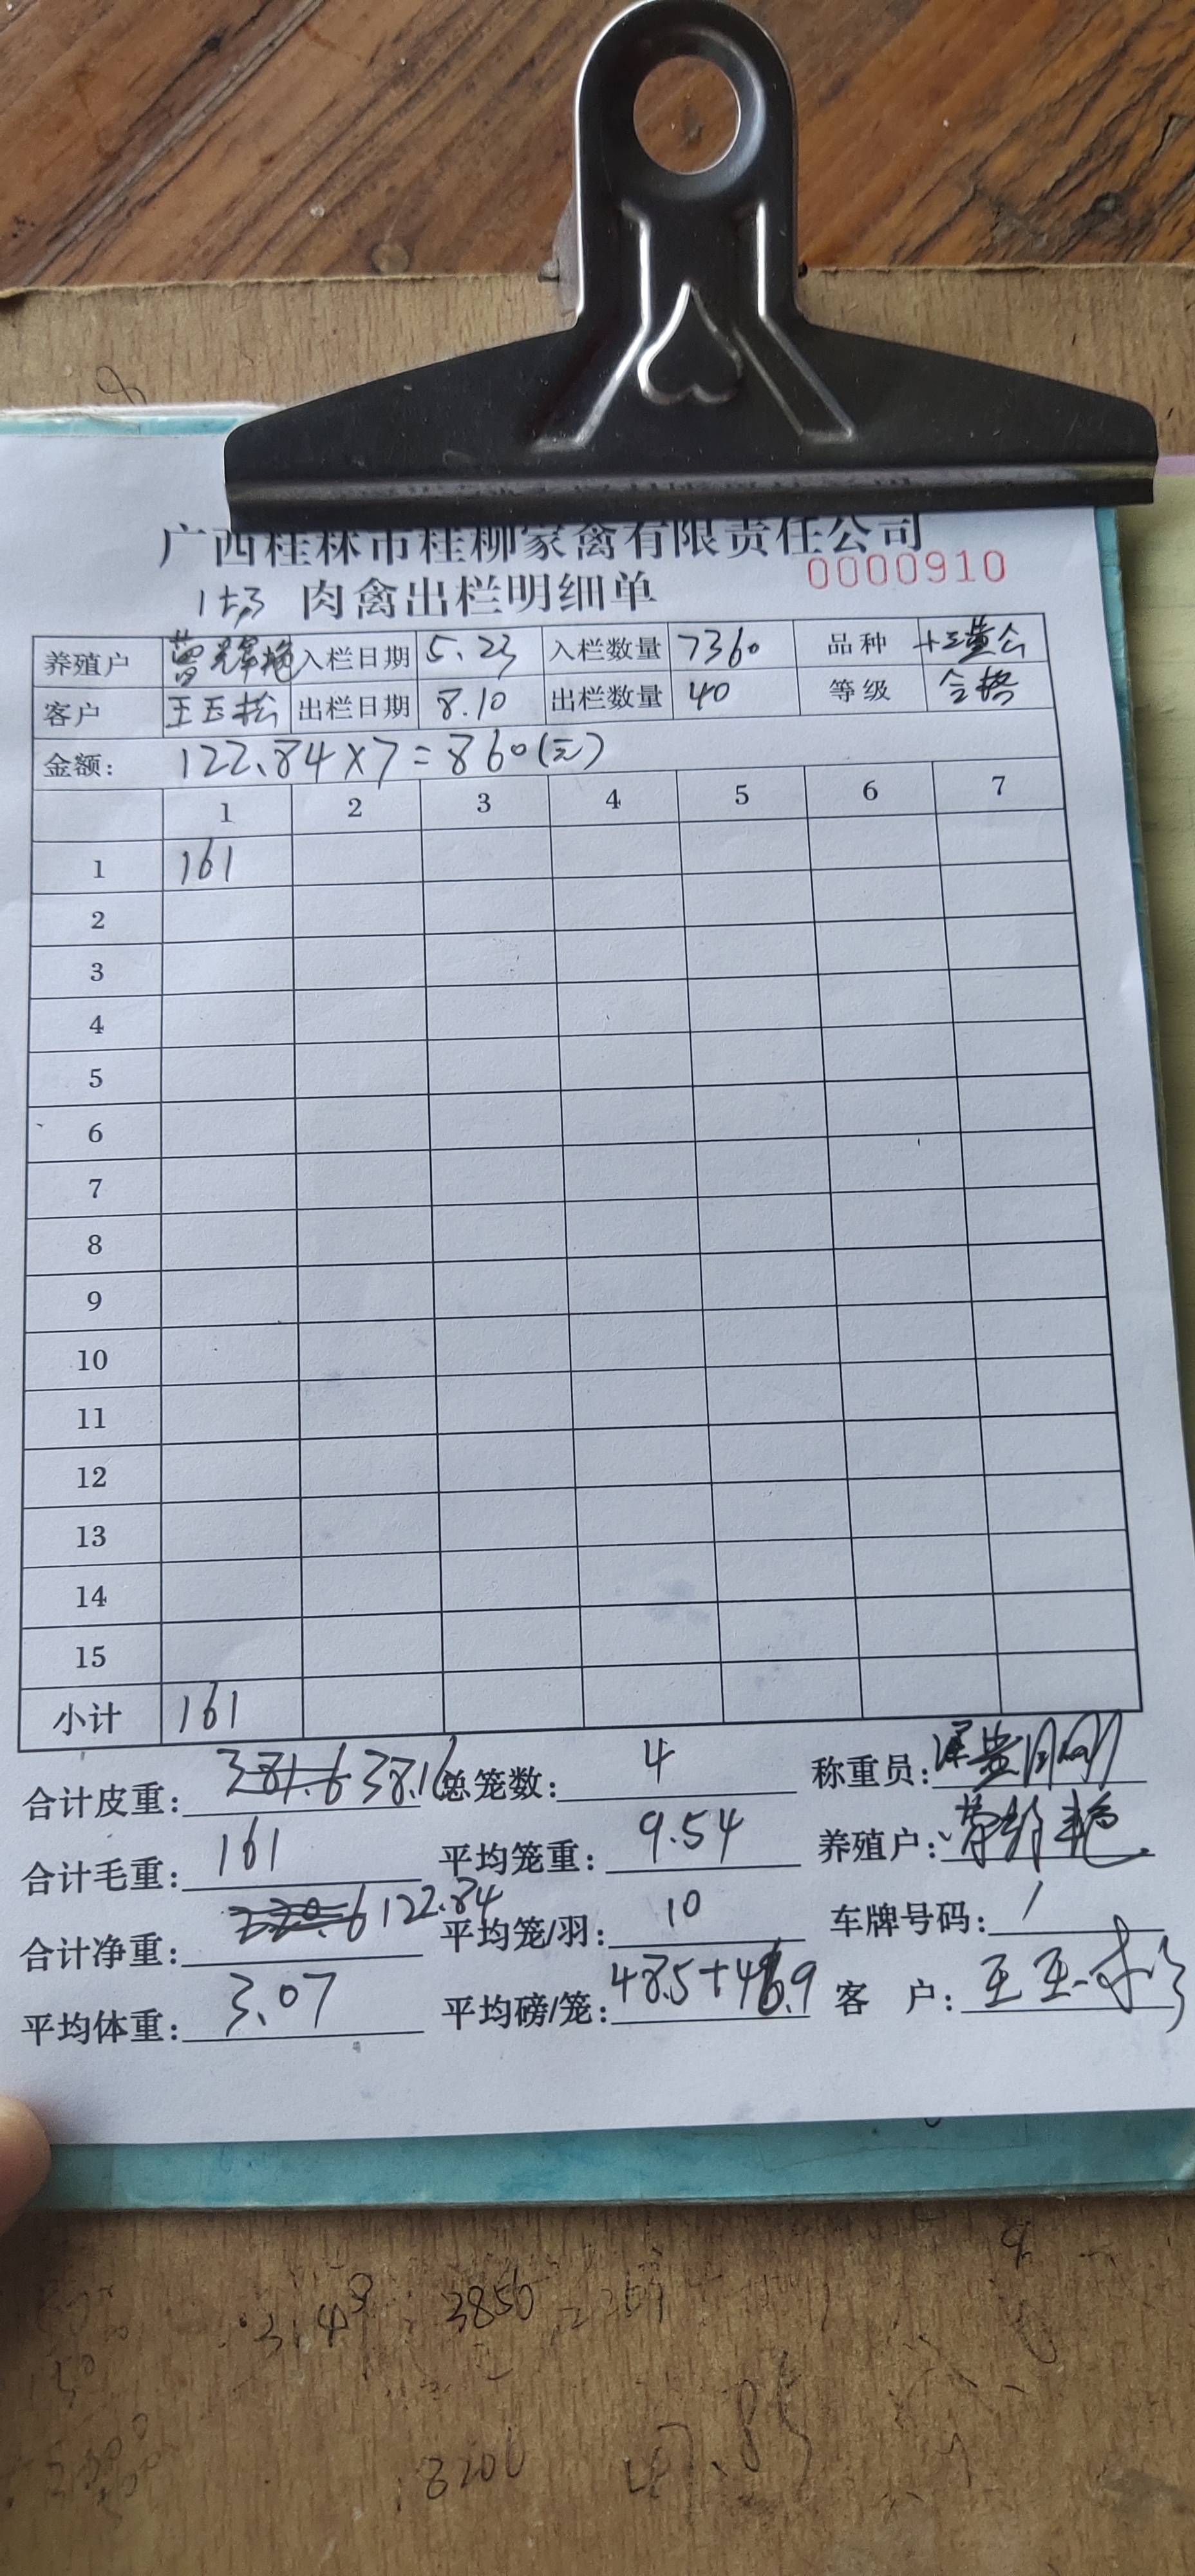 广西桂林市桂柳家禽有限责任公司
0000910
肉禽出栏明细单
养殖户 曾辉艳 入栏日期 5.23 入栏数量 7360 品种
客户 王玉松 出栏日期 8.10 出栏数量 40 等级 合格
金额: 122.84×7=860(元)
1 2 3 4 5 6 7
1 161
2
3
4
5
6
7
8
9
10
11
12
13
14
15
小计 161
合计皮重: 381.6 38.16 总笼数: 4 称重员:
合计毛重: 161 平均笼重: 9.54 养殖户: 曾辉艳
合计净重: 122.84 平均笼/羽: 10 车牌号码: /
平均体重: 3.07 平均磅/笼: 客 户: 王玉松
3850
3200